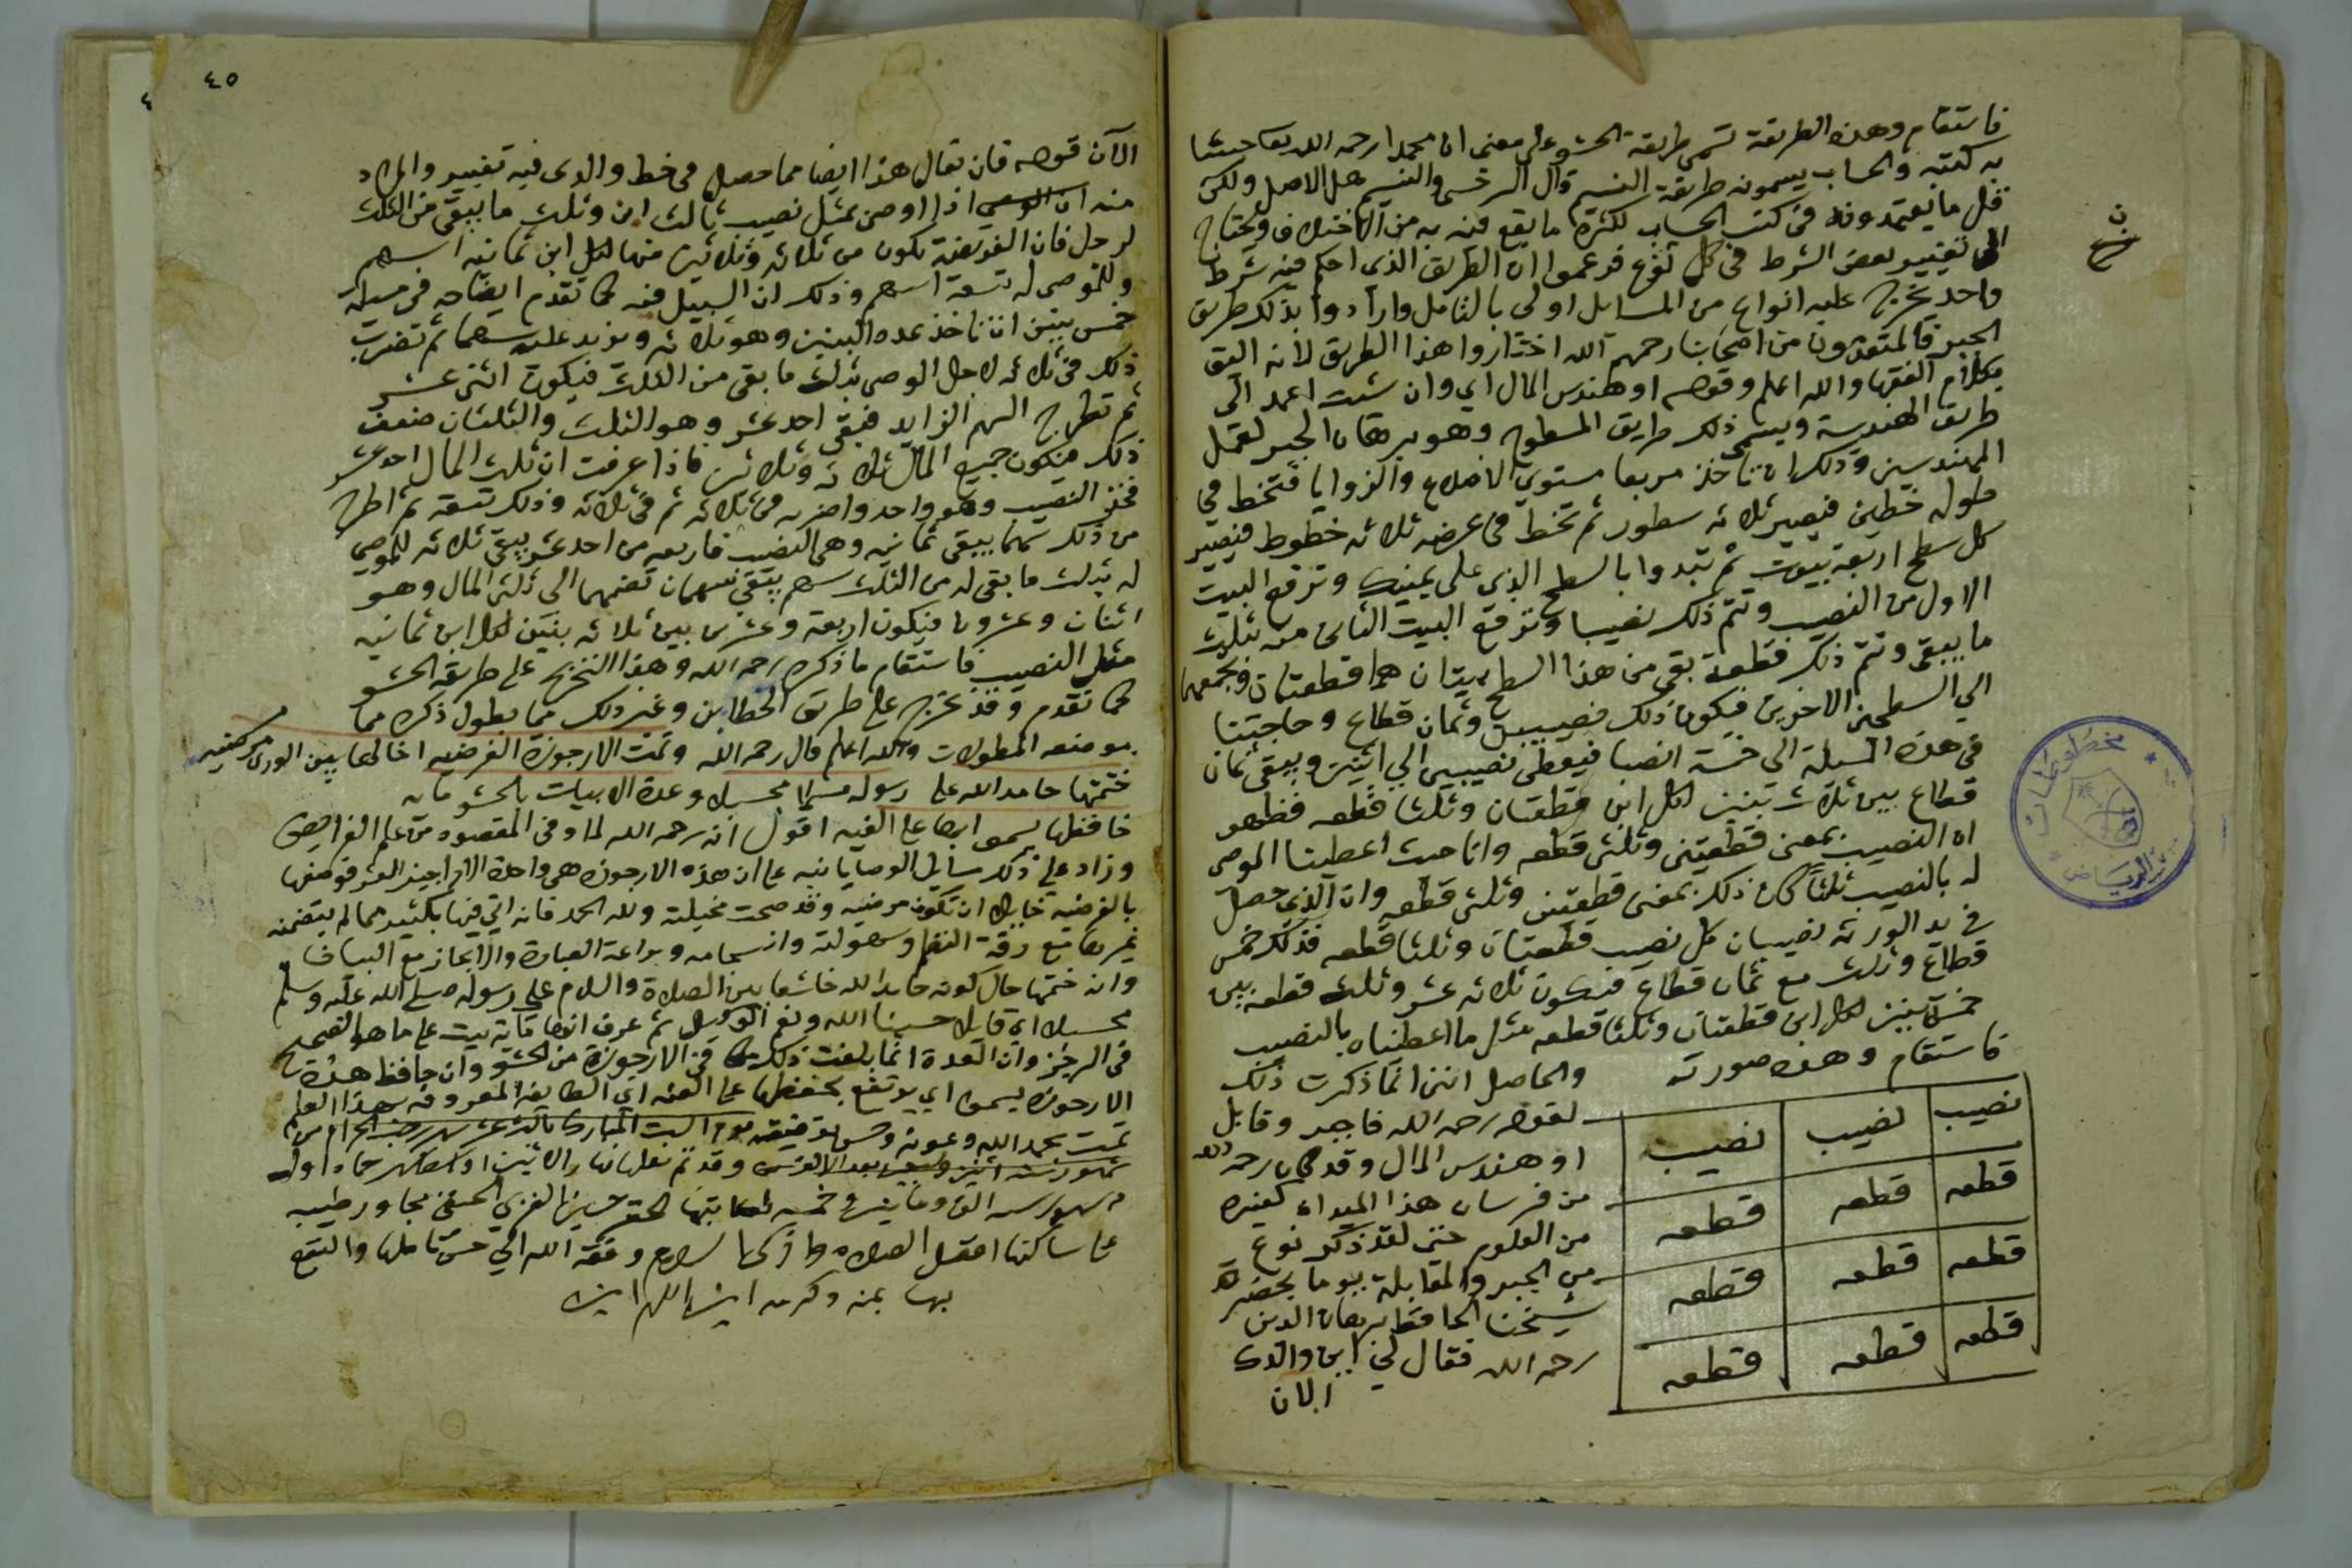 فاستقام وهذه الطريقة تسمى طريقة الحشو على معنى ان محمدا رحمه الله تعالى حيثما
به كتبه والحساب يسمونه طريقة قال السرخسي هل الاصل ولكن
قل ما يعتمدونه في كتب الحساب لكثرة ما يقع فيه به من الاختلاف ويحتاج
الى تغيير بعض الشرط في كل نوع فزعموا ان الطريق الذي احكم فيه شرط
واحد يخرج عليه انواع من المسايل اولى بالتامل وارادوا بذلك طريق
الجبر فالمتقدمون من اصحابنا رحمهم الله اختاروا هذا الطريق لانه اليق
بكلام الفقها والله اعلم وقوله او هندس المال اي وان شئت اعمد الى
طريق الهندسة ويسمى ذلك طريق السطوح وهو برهان الجبر لعمل
المهندسين وذلك ان تاخذ مربعا مستوي الاضلاع والزوايا فتخط في
طوله خطين فيصير ثلاثه سطور ثم تخط في عرضه ثلاثه خطوط فيصير
كل سطح اربعة بيوت ثم تبدوا بالسطح الذي على يمينك وترفع البيت
الاول من النصيب وتتم ذلك نصيبا وترفع البيت الثاني منه بثلث
ما يبقى وتتم ذلك قطعة بقى من هذا السطح بيتان هما قطعتان فجمعهما
الي السطحين الاخرين فيكون ذلك نصيبين وثمان قطاع وحاجتنا
في هذه المسيلة الى خمسة انصبا فيعطى نصيبين الي اثنين ويبقى ثمان
قطاع بين ثلاث بنين لكل ابن قطعتان وثلثا قطعه فظهر
ان النصيب بمعنى قطعتين وثلثي قطعه وانا حيث اعطينا الموصى
له بالنصيب ثلثا كان ذلك بمعنى قطعتين وثلثي قطعه وان الذي حصل
في يد الورثه نصيبان كل نصيب قطعتان وثلثا قطعه فذلك خمس
قطاع وثلث مع ثمان قطاع فيكون ثلاثه عشر وثلث قطعه بين
خمس بنين لكل ابن قطعتان وثلثا قطعه مثل ما اعطيناه بالنصيب
فاستقام وهذه صورته
والحاصل انني انما ذكرت ذلك
لقوله رحمه الله فاجبر وقابل
او هندس المال وقد كان رحمه الله
من فرسان هذا الميدان كغيره
من العلوم حتى لقد ذكر نوع
من الجبر والمقابلة يوما بحضرة
شيخنا الحافظ برهان الدين
رحمه الله فقال لي اين والدك
الان
نصيب نصيب نصيب
قطعه قطعه قطعه
قطعه قطعه قطعه
قطعه قطعه قطعه
مخطوطات
الرياض
٤٥
الآن قوله فان تقال هذا ايضا مما حصل في خط والدى فيه تغيير والمراد
منه ان الموصي اذا اوصى بمثل نصيب ثالث ابن وثلث ما يبقى من الثلث
لرجل فان الفريضة تكون من ثلاثه وثلاثين منها لكل ابن ثمانيه اسهم
وللموصى له تسعة اسهم وذلك ان السبيل فيه كما تقدم ايضاحه في مسيلة
خمس بنين ان تاخذ عدد البنين وهو ثلاثه وتزيد عليه سهما ثم تضرب
ذلك في ثلاثه لاجل الوصى بثلث ما بقى من الثلث فيكون اثنى عشر
ثم تطرح السهم الزايد فيبقى احد عشر وهو الثلث والثلثان ضعف
ذلك فيكون جميع المال ثلاثه وثلاثين فاذا عرفت ان ثلث المال احد عشر
فخذ النصيب وهو واحد واضربه في ثلاثه ثم في ثلاثه وذلك تسعة ثم اطرح
من ذلك سهما يبقى ثمانيه وهي النصيب فارفعه من احد عشر يبقى ثلاثه للموصي
له بثلث ما بقى له من الثلث سهم يبقى سهمان تضمهما الى ثلثي المال وهو
اثنان وعشرون فيكون اربعة وعشرين بين ثلاثه بنين لكل ابن ثمانيه
مثل النصيب فاستقام ما ذكره رحمه الله وهذا التخريج على طريقة الحشو
كما تقدم وقد يخرج على طريق الخطاين وغير ذلك مما يطول ذكره مما
موضعه المطولات والله اعلم قال رحمه الله وتمت الارجوزة الفرضيه اخالها بين الورى مرضيه
ختمتها حامد الله على رسوله مسلما محسبلا وعدة الابيات بالحشو مايه
حافظها يسموا بها على الفيه اقول انه رحمه الله لما وفى المقصود من علم الفرايض
وزاد على ذلك مسايل الوصايا نبه على ان هذه الارجوزه هي واحدة الاراجيز العشر فوصفها
بالفرضيه خايلا ان تكون مرضيه وقد صحت مخيلته ولله الحمد فانه اتى فيها بكثير مما لم يتضمنه
غيرها مع رقة النظم وسهولته وانسجامه وبراعة العبارة والايجاز مع البيان
وانه ختمها حال كونه حامدا لله خاشعا بين الصلاة والسلام على رسوله صلى الله عليه وسلم
محسبلا اي قايلا حسبنا الله ونعم الوكيل ثم عرف انها مائة بيت على ما هو الصحيح
في الرجز وان العدة انما بلغت ذلك بما في الارجوزة من الحشو وان حافظ هذه
الارجوزه يسموا اي يرتفع بحفظها على الفئه اي الطايفة المعروفه بهذا العلم
تمت بحمد الله وعونه وحسن توفيقه يوم السبت المبارك ثالث عشر شهر رجب الحرام من
شهور سنة اثنين بعد الالف وقد تم نقلها نهار الاثنين جماد اول
من شهور سنه الف ومايتين وخمسه كاتبها الحقير حسين الغزي الحنفي مجاور طيبه
على ساكنها افضل الصلاه وازكى السلام وفقه الله الى حسن تاملها والنفع
بها بمنه وكرمه امين اللهم امين